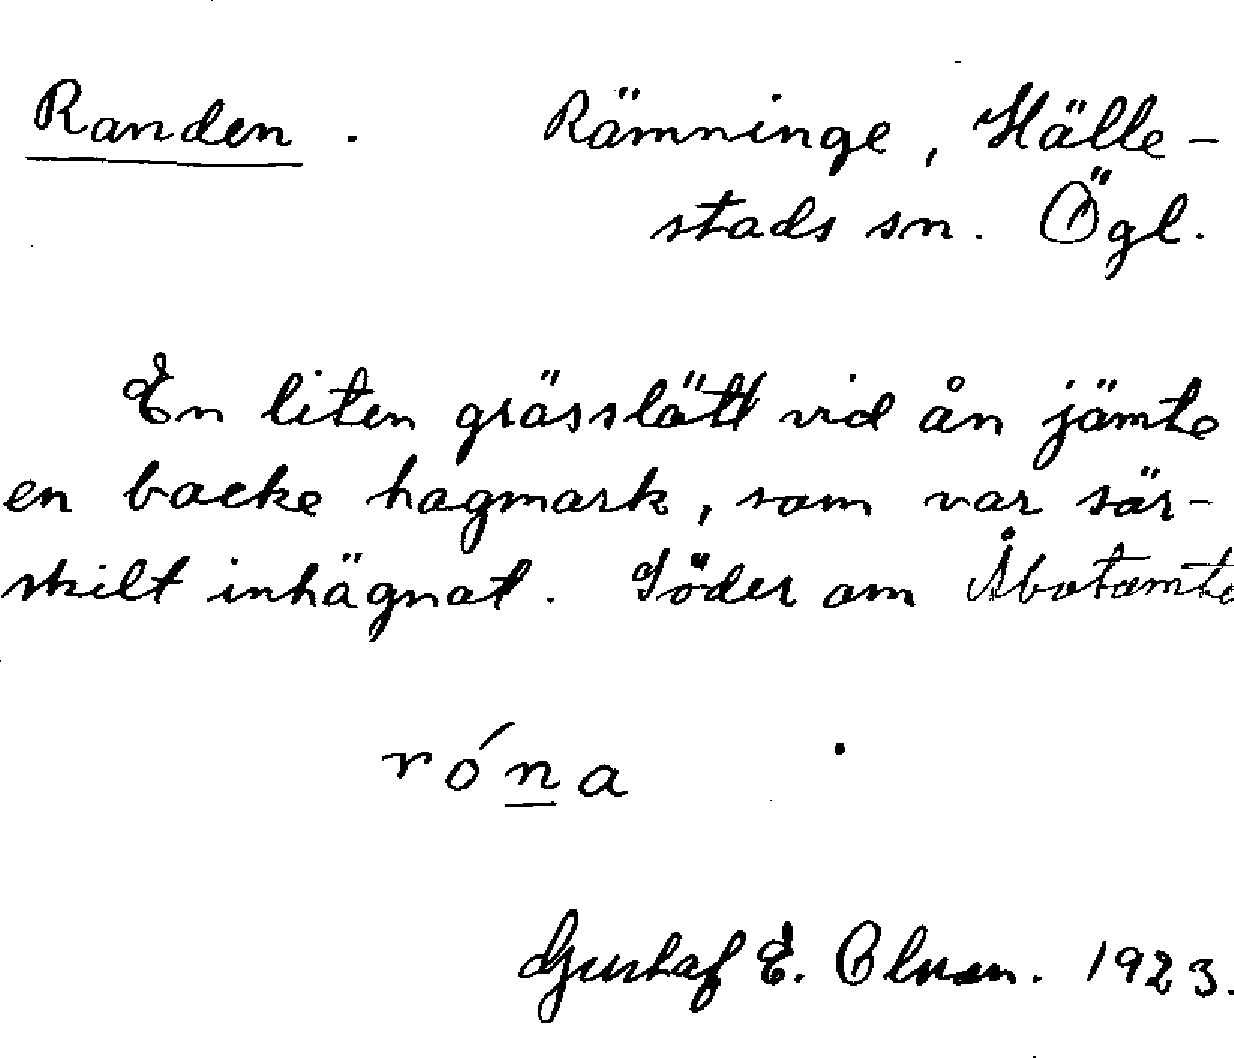 Randen. Rämninge, Hälle-
stads sn. Ögl.
En liten grässlätt vid ån jämte
en backe hagmark, som var sär-
skilt inhägnat. Söder om Åbotamte
róna
Gustaf E. Olsson. 1923.